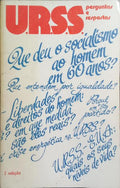 URSS
perguntas
e
respostas
Que deu o socialismo
ao homem
em 60 anos?
Que entendem por igualdade?
Liberdades
e direitos do homem
em que medida
são tão reais?
URSS?
URSS-EUA:
quais os seus
níveis de vida?
2 edição